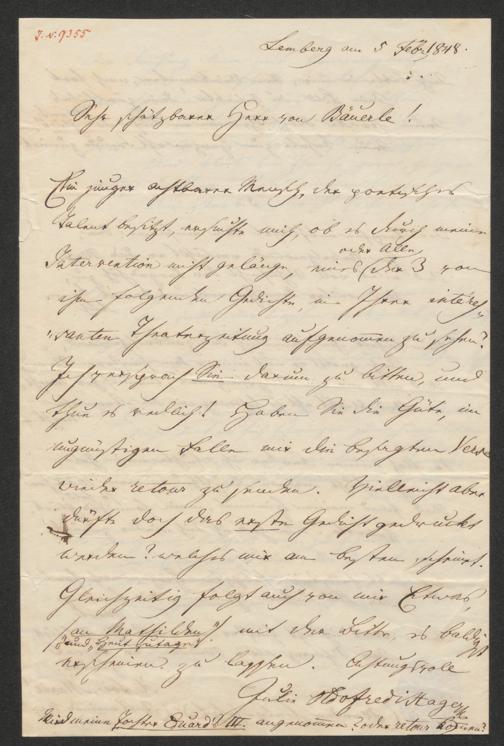 I.N. 9355
Lemberg am 5 Febr. 1848.
Sehr schätzbarer Herr von Bäuerle!
Ein junger achtbarer Mensch, der poetisches
Talent besitzt, ersuchte mich, ob es durch meine
Intervention nicht gelänge, eines (der 3 von
oder Alle,
ihm folgenden Gedichte, in Ihrer interes„
„santen Theaterzeitung aufgenommen zu sehen?
Ich versprach Sie darum zu bitten, und
thue es redlich! Haben Sie die Güte, im
ungünstigen Falle mir die besagten Verse
wieder retour zu senden. Vielleicht aber
dürfte doch das erste Gedicht gedruckt
werden? welches mir am besten scheint.
Gleichzeitig folgt auch von mir Etwas,
„an Mathilden" mit der Bitte, es baldigst
erscheinen zu lassen. Achtungsvolle
Julie
Wird meine angenommen? oder retour